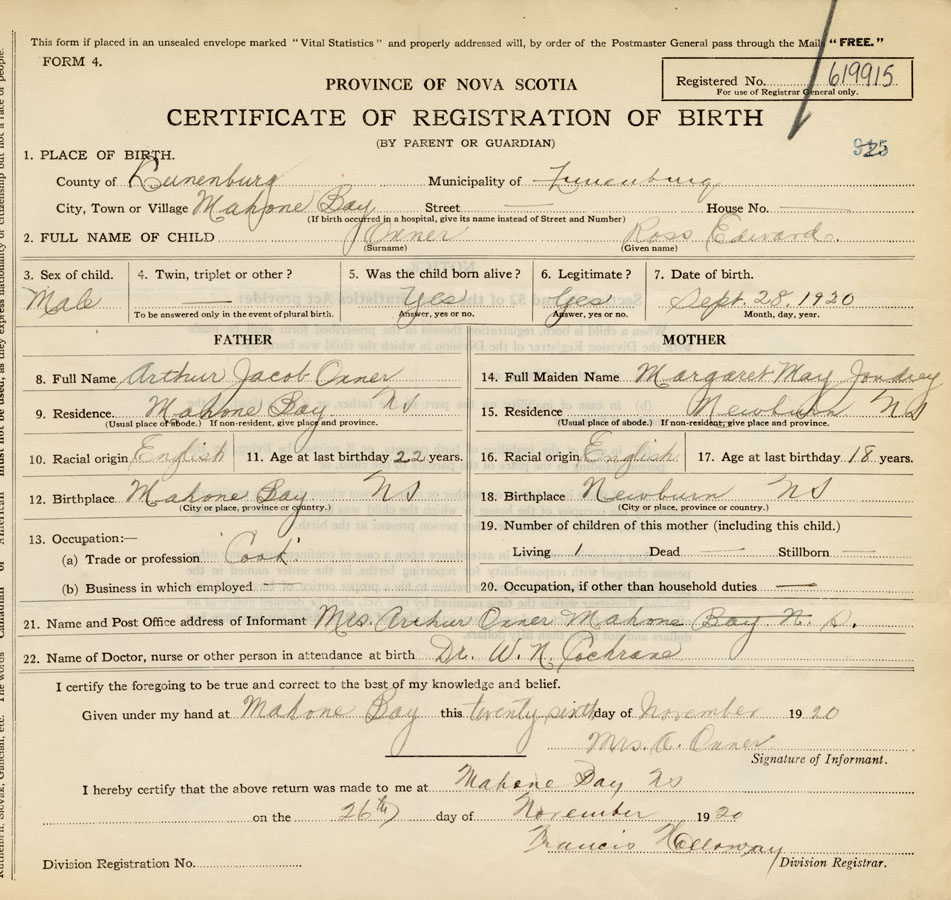 This form if placed in an unsealed envelope marked "Vital Statistics" and properly addressed will, by order of the Postmaster General pass through the Mails "FREE."
FORM 4.
Registered No. 619915
For use of Registrar General only.
PROVINCE OF NOVA SCOTIA
CERTIFICATE OF REGISTRATION OF BIRTH
(BY PARENT OR GUARDIAN)
1. PLACE OF BIRTH.
County of Lunenburg Municipality of Lunenburg
City, Town or Village Mahone Bay Street — House No. —
(If birth occurred in a hospital, give its name instead of Street and Number)
2. FULL NAME OF CHILD Oxner Ross Edward.
(Surname) (Given name)
3. Sex of child. 4. Twin, triplet or other? 5. Was the child born alive? 6. Legitimate? 7. Date of birth.
Male — Yes Yes Sept. 28. 1920
To be answered only in the event of plural birth. Answer, yes or no. Answer, yes or no. Month, day, year.
FATHER MOTHER
8. Full Name Arthur Jacob Oxner 14. Full Maiden Name Margaret May Joudrey
9. Residence. Mahone Bay NS 15. Residence Newburn NS
(Usual place of abode.) If non-resident, give place and province. (Usual place of abode.) If non-resident, give place and province.
10. Racial origin English 11. Age at last birthday 22 years. 16. Racial origin English 17. Age at last birthday 18 years.
12. Birthplace Mahone Bay NS 18. Birthplace Newburn NS
(City or place, province or country.) (City or place, province or country.)
13. Occupation:— 19. Number of children of this mother (including this child.)
(a) Trade or profession 'Cook' Living 1 Dead — Stillborn —
(b) Business in which employed — 20. Occupation, if other than household duties —
21. Name and Post Office address of Informant Mrs. Arthur Oxner Mahone Bay N. S.
22. Name of Doctor, nurse or other person in attendance at birth Dr. W. N. Cochrane
I certify the foregoing to be true and correct to the best of my knowledge and belief.
Given under my hand at Mahone Bay this twenty sixth day of November 1920
Mrs. A. Oxner
Signature of Informant.
I hereby certify that the above return was made to me at Mahone Bay NS
on the 26th day of November 1920
Francis Holloway
Division Registration No. Division Registrar.